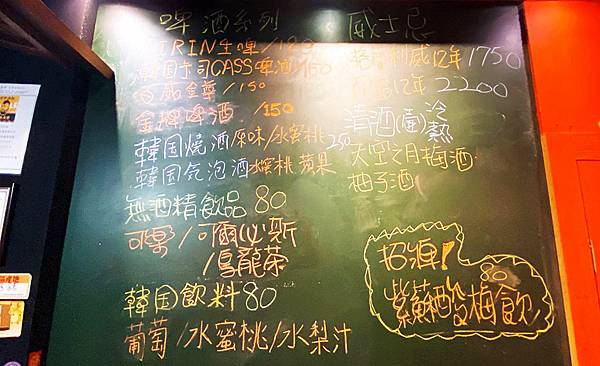 啤酒系列
KIRIN生啤/120
韓国卡司CASS啤酒/150
百威金尊/150
金牌啤酒/150
韓国燒酒/原味/水蜜桃 250
韓国気泡酒水蜜桃 蘋果
無酒精飲品80
可樂/可爾必斯
/烏龍茶
韓国飲料80
葡萄/水蜜桃/水梨汁
威士忌
格蘭利威12年1750
12年2200
清酒(壺)冷
熱
天空之月梅酒
柚子酒
招牌!
80
紫蘇酸梅飲